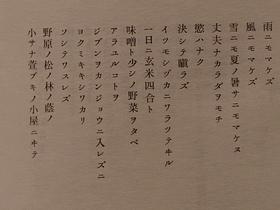 雨ニモマケズ
風ニモマケズ
雪ニモ夏ノ暑サニモマケヌ
丈夫ナカラダヲモチ
慾ハナク
決シテ瞋ラズ
イツモシヅカニワラッテヰル
一日ニ玄米四合ト
味噌ト少シノ野菜ヲタベ
アラユルコトヲ
ジブンヲカンジョウニ入レズニ
ヨクミキキシワカリ
ソシテワスレズ
野原ノ松ノ林ノ蔭ノ
小サナ萱ブキノ小屋ニヰテ